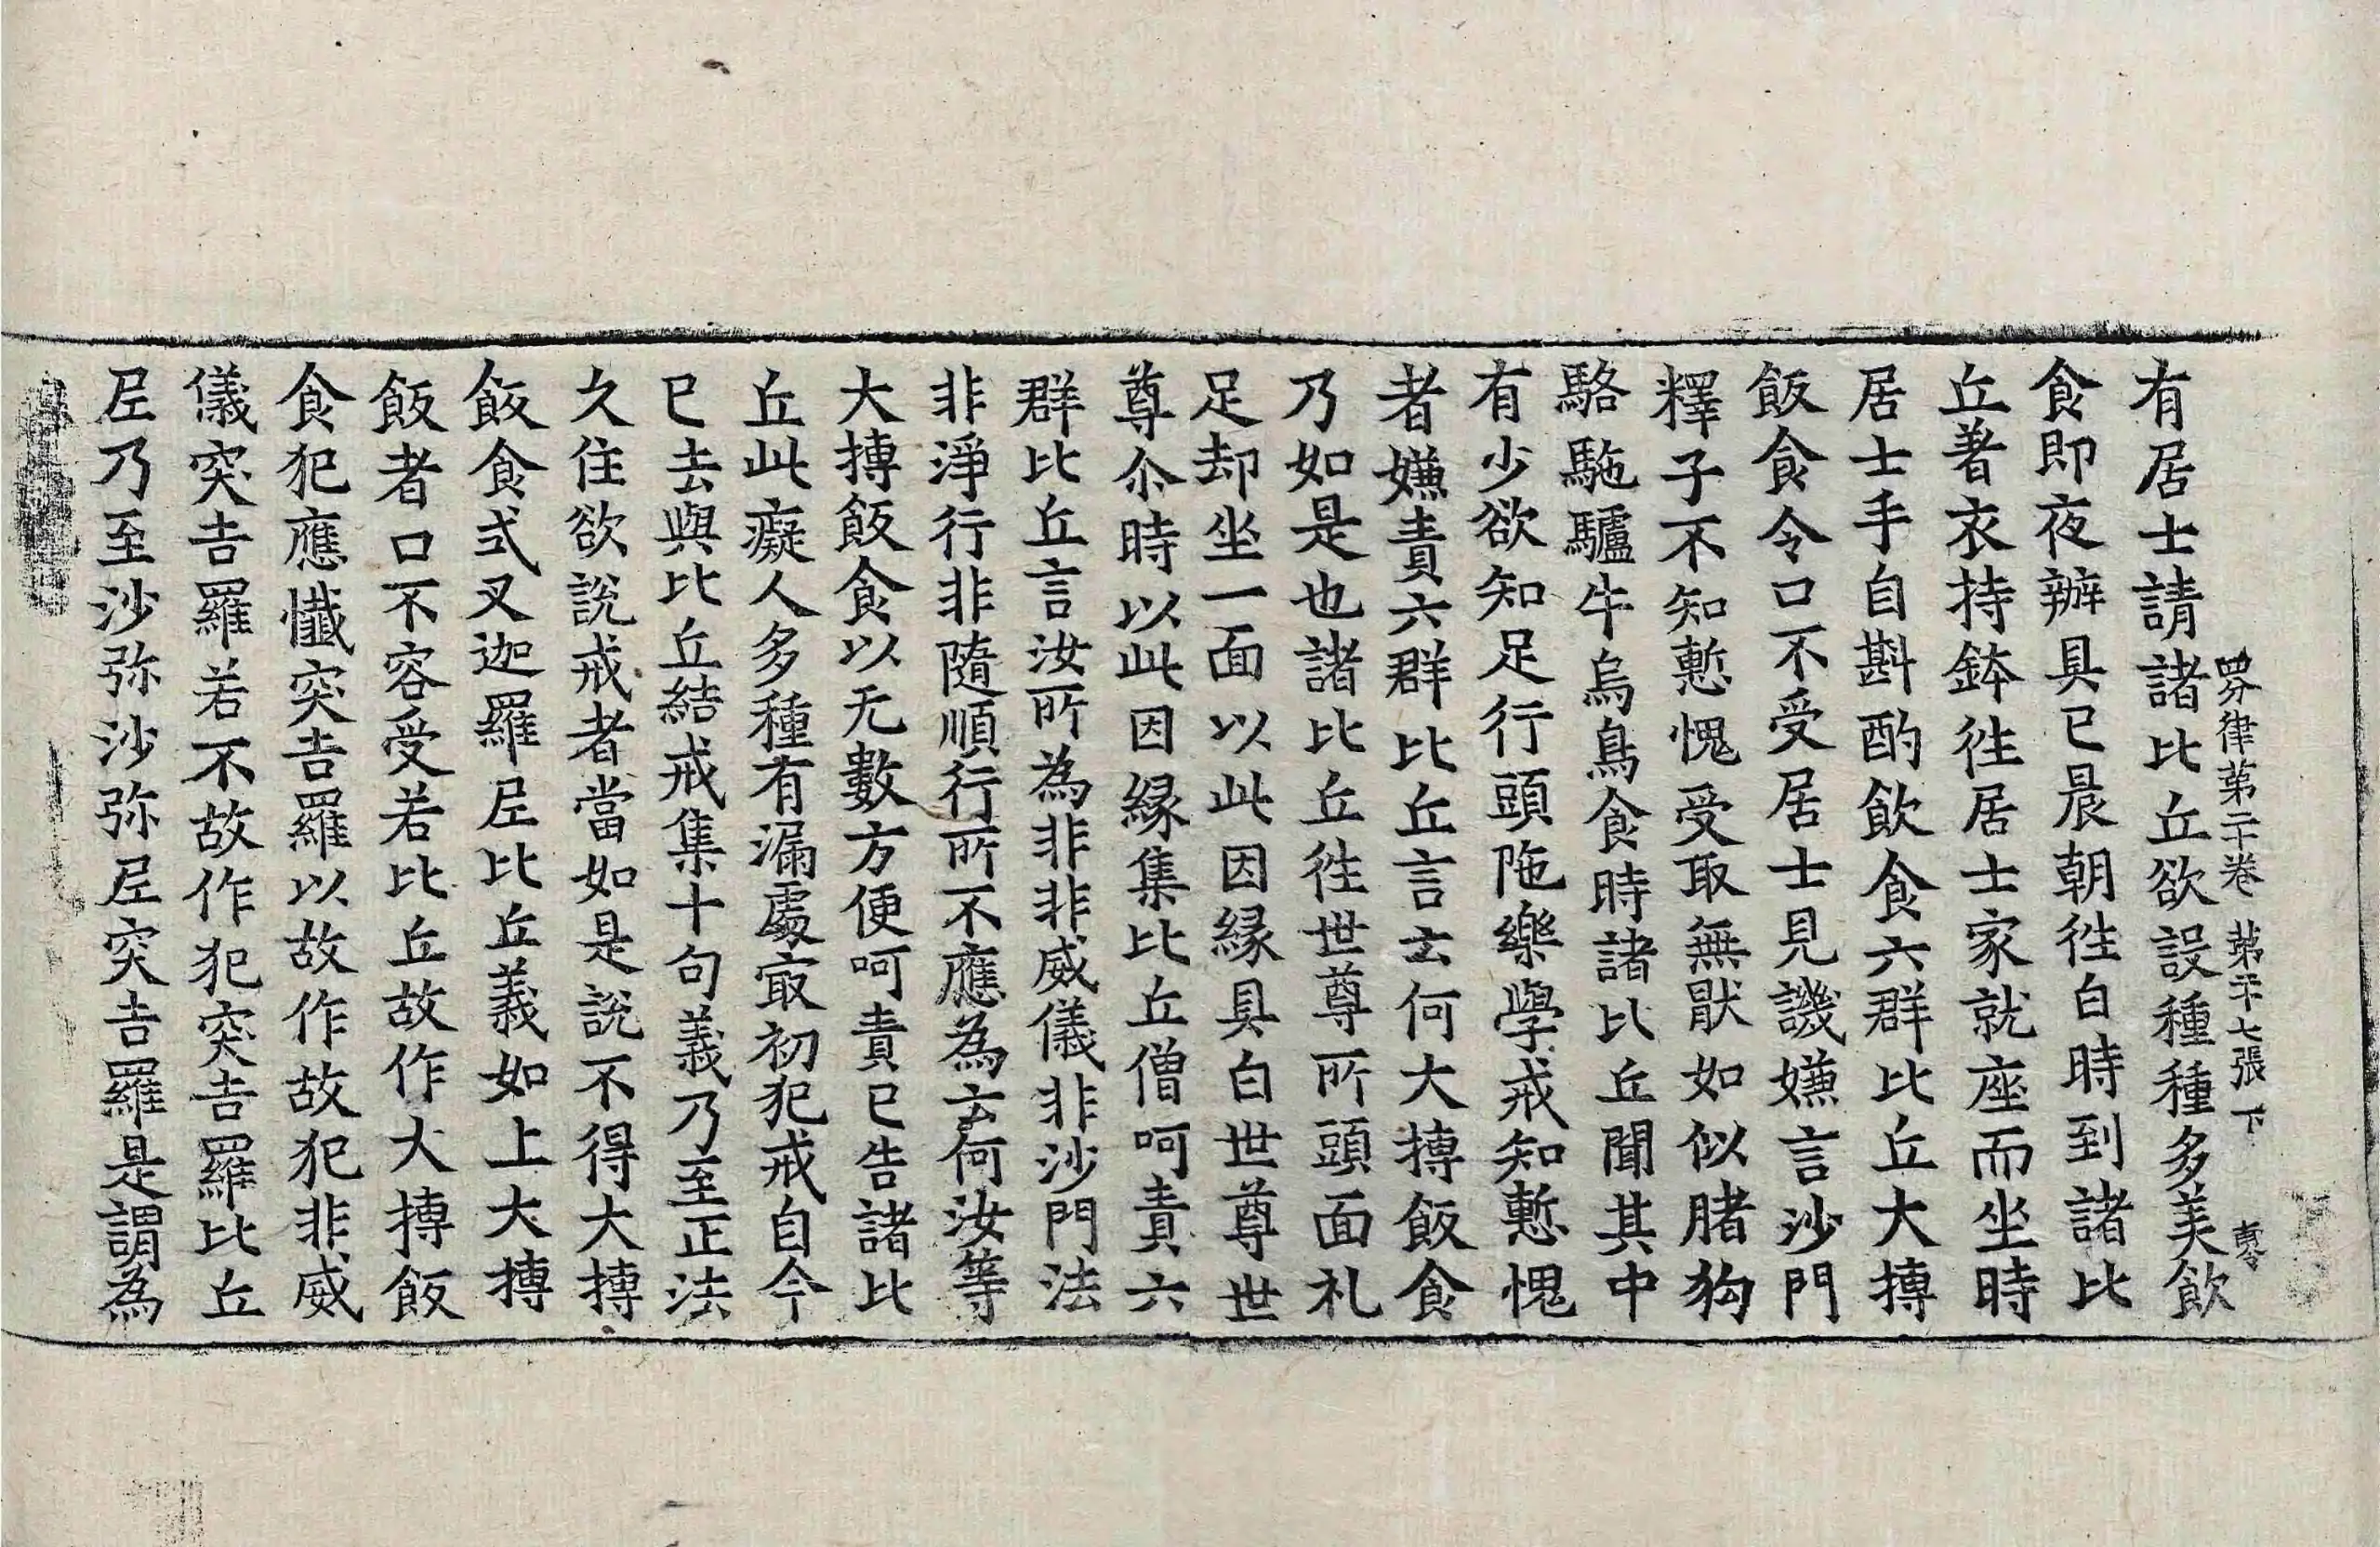 四分律第二十卷　第二十七張　下
有居士請諸比丘欲設種種多美飲
食即夜辦具已晨朝往白時到諸比
丘著衣持鉢往居士家就座而坐時
居士手自斟酌飲食六群比丘大摶
飯食令口不受居士見譏嫌言沙門
釋子不知慙愧受取無猒如似賭狗
駱駞驢牛烏鳥食時諸比丘聞其中
有少欲知足行頭陁樂學戒知慙愧
者嫌責六群比丘言云何大摶飯食
乃如是也諸比丘往世尊所頭面礼
足却坐一面以此因緣具白世尊世
尊尒時以此因緣集比丘僧呵責六
群比丘言汝所為非非威儀非沙門法
非淨行非隨順行所不應為云何汝等
大摶飯食以无數方便呵責已告諸比
丘此癡人多種有漏處㝡初犯戒自今
已去與比丘結戒集十句義乃至正法
久住欲說戒者當如是說不得大摶
飯食式叉迦羅尼比丘義如上大摶
飯者口不容受若比丘故作大摶飯
食犯應懺突吉羅以故作故犯非威
儀突吉羅若不故作犯突吉羅比丘
尼乃至沙弥沙弥尼突吉羅是謂為